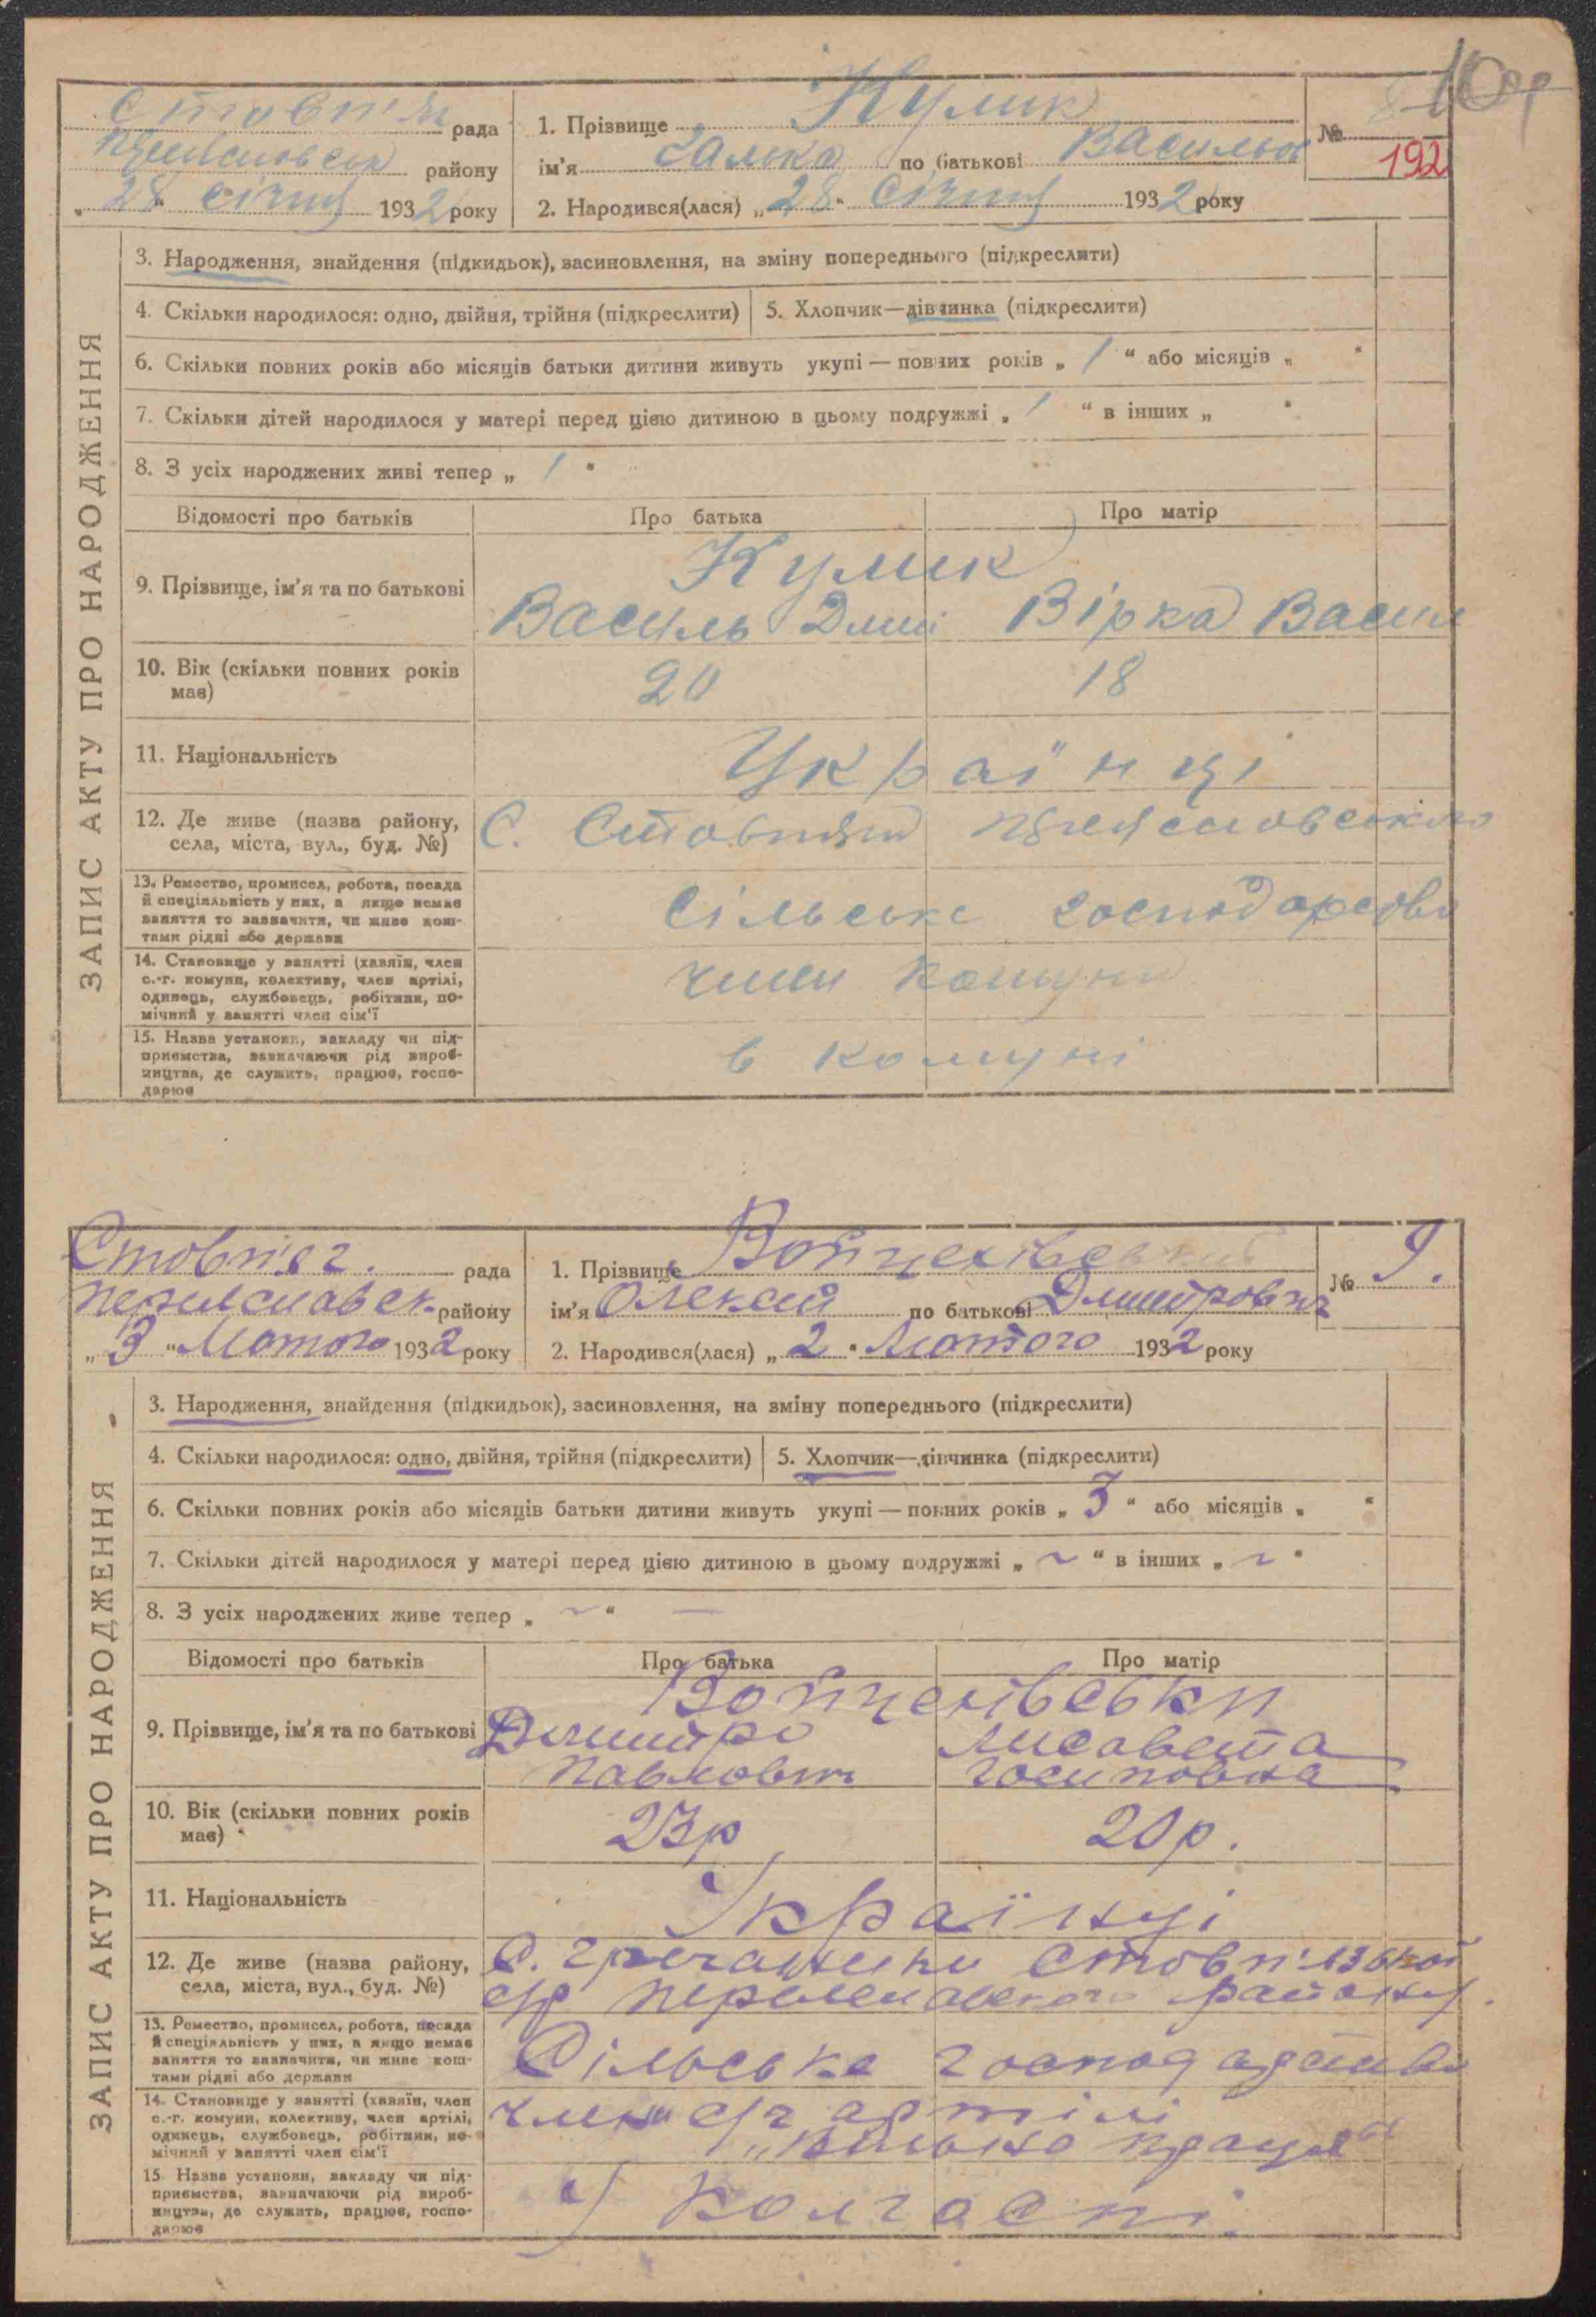 Стовп'яг рада
Переяславськ району
„28“ січня 1932 року
1. Прізвище Кулик
ім'я Галька по батькові Васильов
2. Народився(лася) „28“ січня 1932 року
№ 8
192
3. Народження, знайдення (підкидьок), засиновлення, на зміну попереднього (підкреслити)
4. Скільки народилося: одно, двійня, трійня (підкреслити)
5. Хлопчик—дівчинка (підкреслити)
6. Скільки повних років або місяців батьки дитини живуть укупі — повних років „ 1 “ або місяців „ “
7. Скільки дітей народилося у матері перед цією дитиною в цьому подружжі „ 1 “ в інших „ “
8. З усіх народжених живі тепер „ 1 “
Відомості про батьків
Про батька
Про матір
9. Прізвище, ім'я та по батькові
Кулик
Василь Дми
Вірка Васил
10. Вік (скільки повних років
має)
20
18
11. Національність
Українці
12. Де живе (назва району,
села, міста, вул., буд. №)
С. Стовпяги
13. Ремество, промисел, робота, посада
й спеціяльність у них, а якщо немає
заняття то зазначити, чи живе кош-
тами рідні або держави
сільське господарство
14. Становище у занятті (хазяїн, член
с.-г. комуни, колективу, член артілі,
одинець, службовець, робітник, по-
мічний у занятті член сім'ї
член комуни
15. Назва установи, закладу чи під-
приємства, зазначаючи рід вироб-
ництва, де служить, працює, госпо-
дарює
в комуні
ЗАПИС АКТУ ПРО НАРОДЖЕННЯ
Стовп'яг. рада
Переяславск. району
„3“ Лютого 1932 року
1. Прізвище Войцехівський
ім'я Олексій по батькові Дмитрович
2. Народився(лася) „2“ Лютого 1932 року
№ 9.
3. Народження, знайдення (підкидьок), засиновлення, на зміну попереднього (підкреслити)
4. Скільки народилося: одно, двійня, трійня (підкреслити)
5. Хлопчик—дівчинка (підкреслити)
6. Скільки повних років або місяців батьки дитини живуть укупі — повних років „ 3 “ або місяців „ “
7. Скільки дітей народилося у матері перед цією дитиною в цьому подружжі „ ~ “ в інших „ ~ “
8. З усіх народжених живе тепер „ ~ “ —
Відомості про батьків
Про батька
Про матір
9. Прізвище, ім'я та по батькові
Войцехівськи
Дмитро
Павлович
Лисавета
Йосиповна
10. Вік (скільки повних років
має)
23р
20р.
11. Національність
Українці
12. Де живе (назва району,
села, міста, вул., буд. №)
С. Гречаники Стовп'язької
с/р Переяславского району.
13. Ремество, промисел, робота, посада
й спеціяльність у них, а якщо немає
заняття то зазначити, чи живе кош-
тами рідні або держави
Сільське господарство
14. Становище у занятті (хазяїн, член
с.-г. комуни, колективу, член артілі,
одинець, службовець, робітник, по-
мічний у занятті член сім'ї
член с/г артілі
„Вільна праця“
15. Назва установи, закладу чи під-
приємства, зазначаючи рід вироб-
ництва, де служить, працює, госпо-
дарює
у колгоспі.
ЗАПИС АКТУ ПРО НАРОДЖЕННЯ